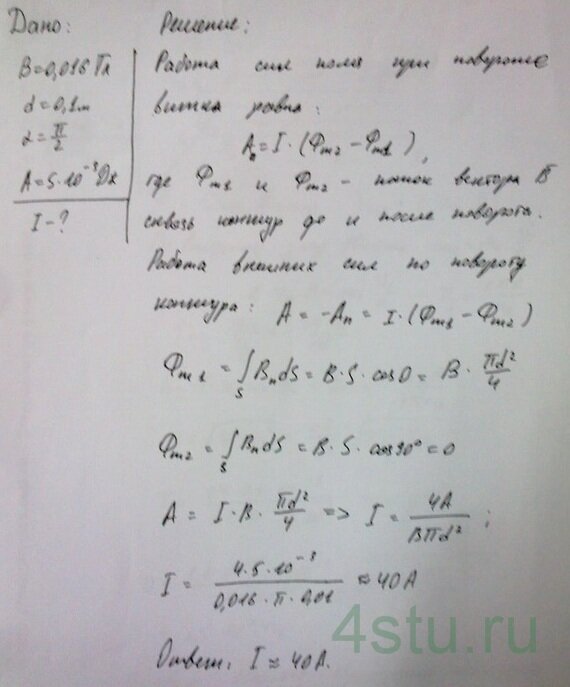 Дано:
B=0,016 Тл
d=0,1м
α=π/2
A=5·10⁻³ Дж
I-?
Решение:
Работа сил поля при повороте
витка равна:
Aп=I·(Фm2-Фm1),
где Фm1 и Фm2 - поток вектора B̅
сквозь контур до и после поворота.
Работа внешних сил по повороту
контура: A = -Aп = I·(Фm1-Фm2)
Фm1 = ∫S BndS = B·S·cos0 = B·πd²/4
Фm2 = ∫S BndS = B·S·cos90° = 0
A = I·B·πd²/4 => I = 4A/Bπd²;
I = 4·5·10⁻³/0,016·π·0,01 ≈ 40A
Ответ: I ≈ 40A.
4stu.ru